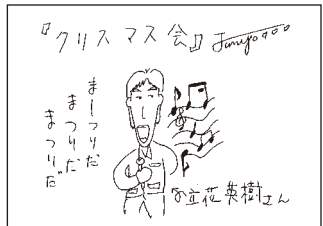 『クリスマス会』 Junyo
まーつりだ
まつりだ
まつりだ
立花英樹さん